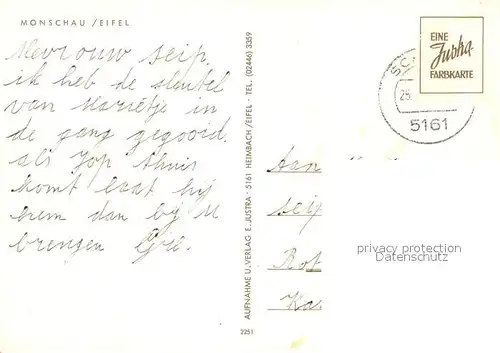 MONSCHAU / EIFEL
Mevrouw Seip.
ik heb de sleutel
van Marietje in
de gang gegooid.
als Jop thuis
komt laat hij
hem dan bij U
brengen
AUFNAHME U. VERLAG E. JUSTRA · 5161 HEIMBACH / EIFEL · TEL. (02446) 3359
2251
EINE
Justra
FARBKARTE
5161
Aan
Seip
Rot
Ka
privacy protection
Datenschutz